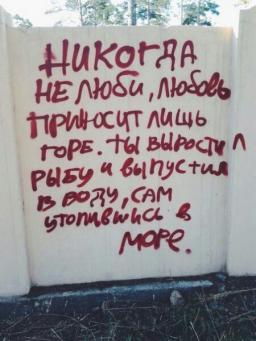 НИКОГДА
НЕ ЛЮБИ, ЛЮБОВЬ
ПРИНОСИТ ЛИШЬ
ГОРЕ. ТЫ ВЫРОСТИЛ
РЫБУ И ВЫПУСТИЛ
В ВОДУ, САМ
УТОПИВШИСЬ В
МОРЕ.